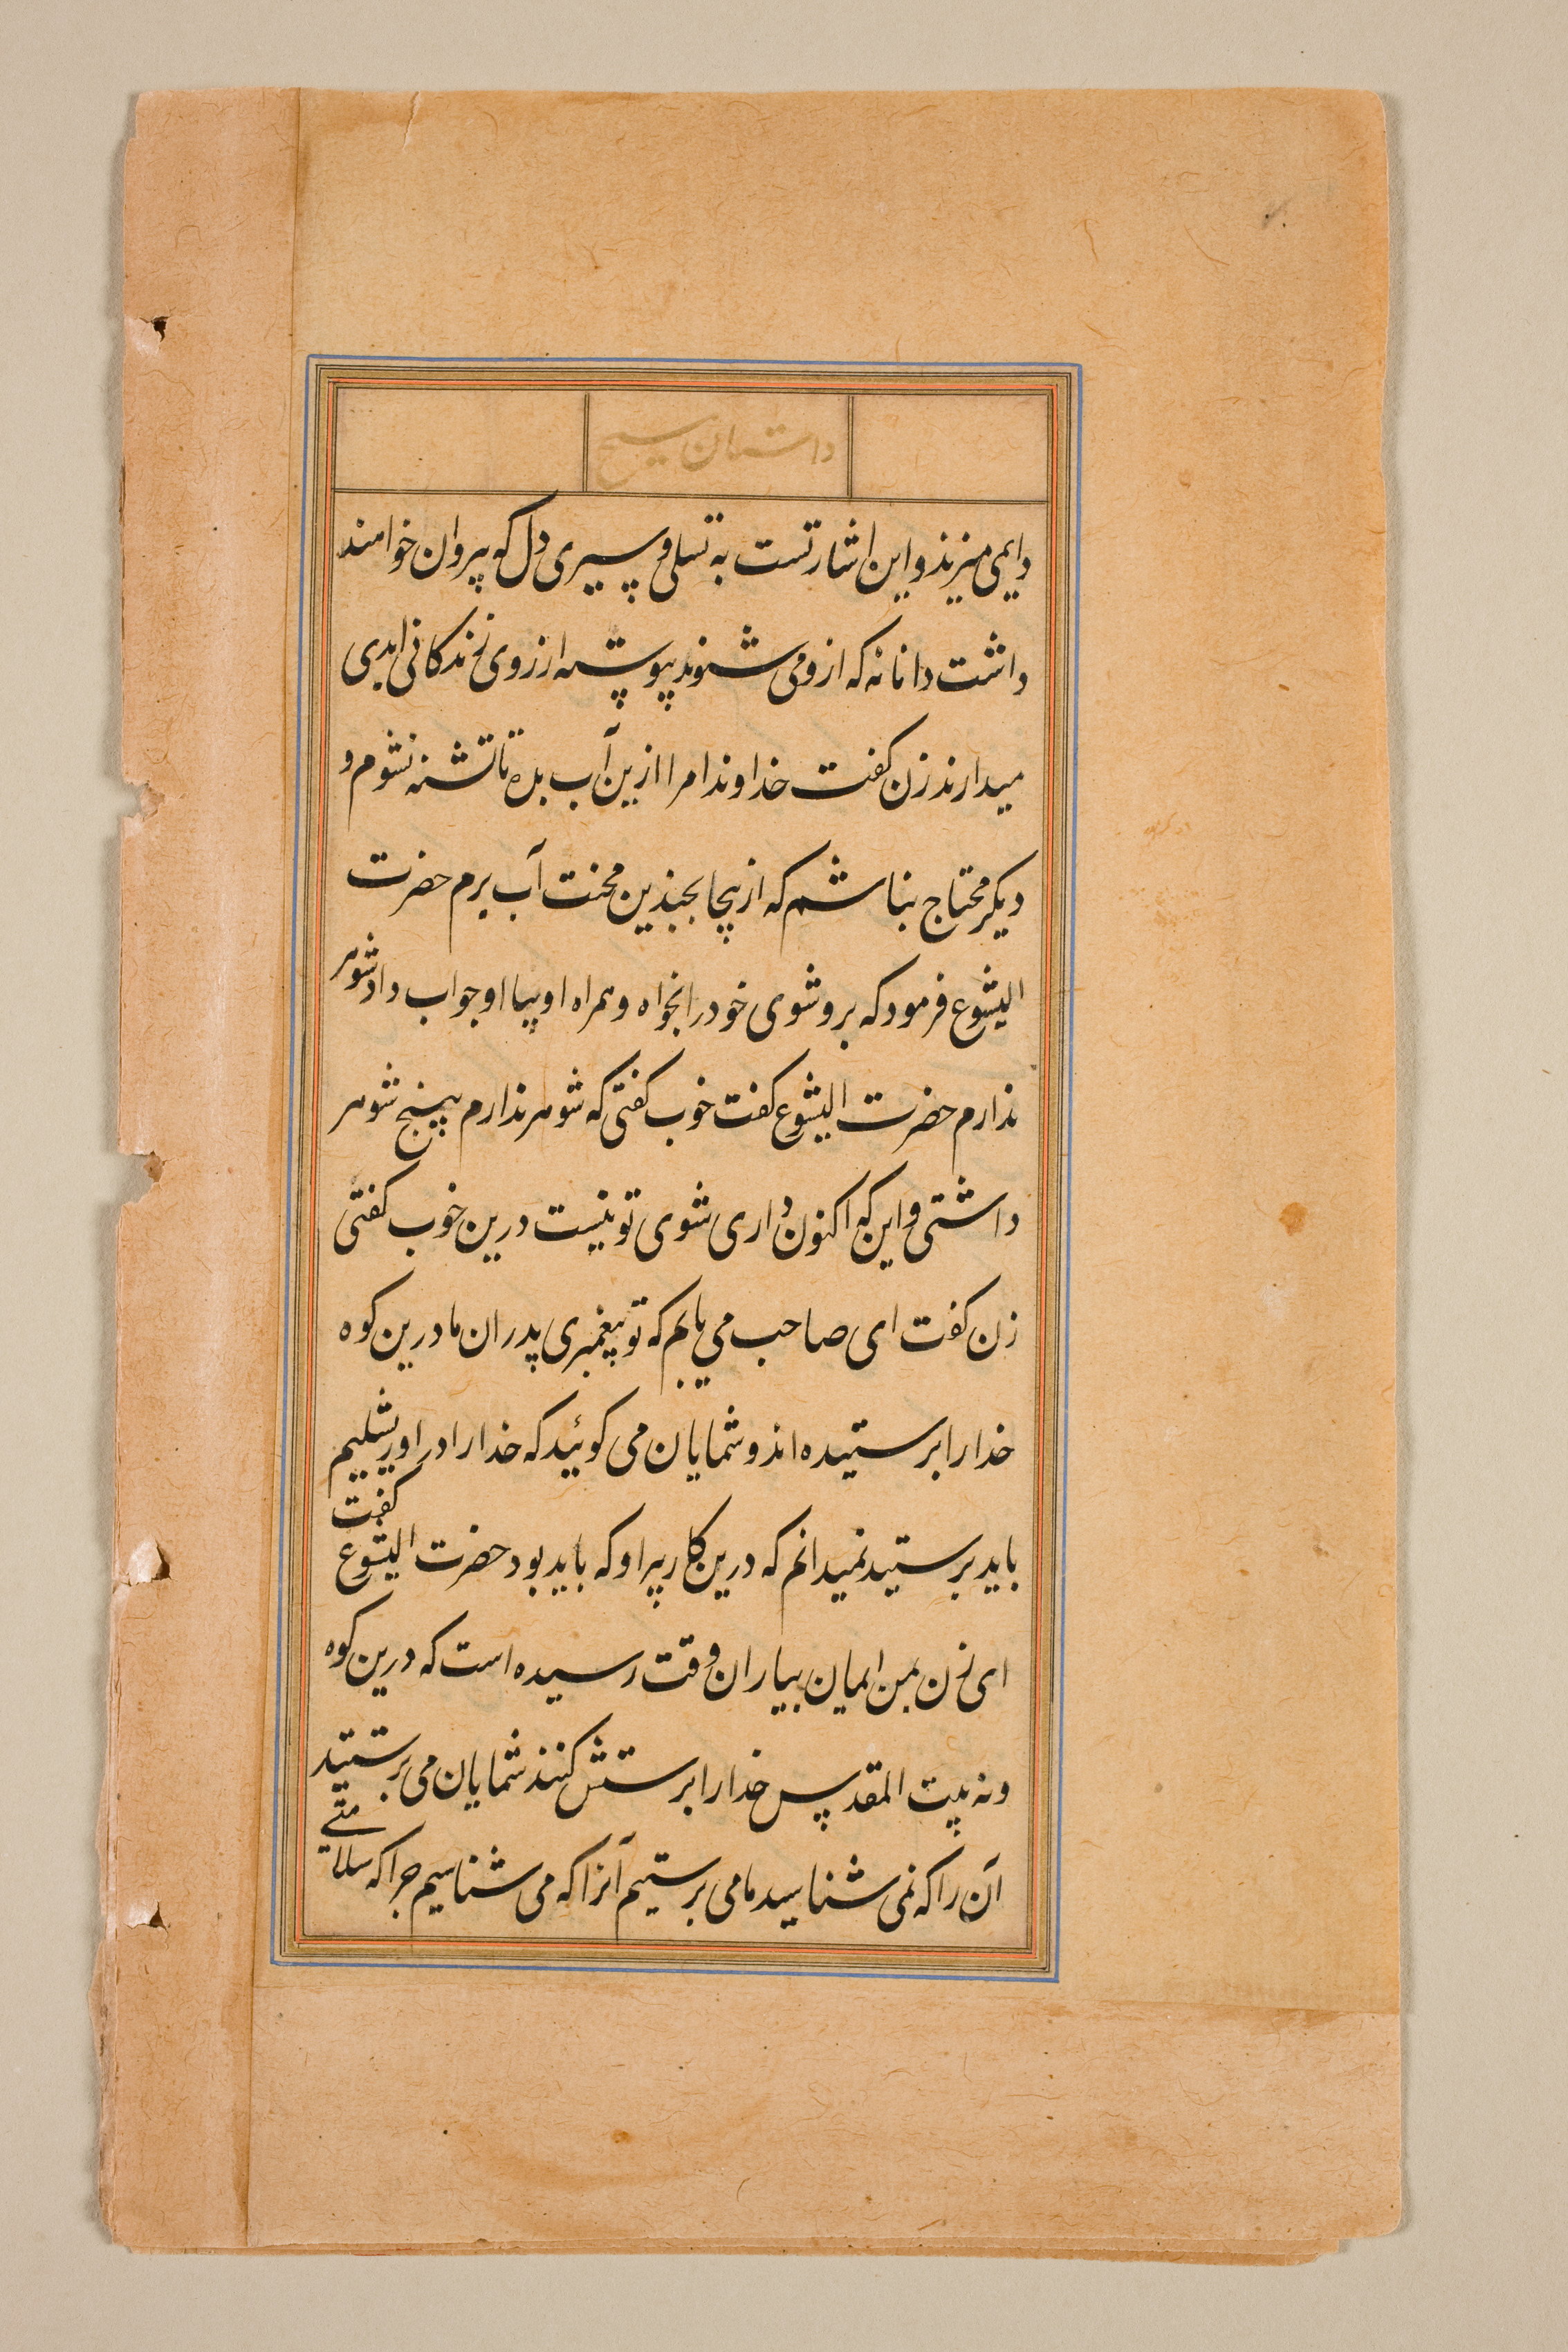 داستان مسیح
دایمی میزیذ و این اشارتست به تسلی و سیری دل که پیروان خواهند
داشت دانا نه که ازو می شنوند پیوسته ارزوی زندکانی ابدی
میدارند زن کفت خداوندا مرا ازین آب بده تا تشنه نشوم و
دیکر محتاج نباشم که از اینجا بچندین محنت آب برم حضرت
الیشوع فرمود که برو شوی خود را بخواه و همراه او بیا او جواب داد شوهر
ندارم حضرت الیشوع کفت خوب کفتی که شوهر ندارم پنج شوهر
داشتی و این که اکنون داری شوی تو نیست درین خوب کفتی
زن کفت ای صاحب می یابم که تو پیغمبری پدران ما درین کوه
خدا را پرستیده اند و شمایان می کوئید که خدا را در اوریشلیم
باید پرستید نمیدانم که درین کار پیرا و که باید بود حضرت الیشوع کفت
ای زن بمن ایمان بیار ان وقت رسیده است که درین کوه
و نه بیت المقدس خدا را پرستش کنند شمایان می پرستید
آن را که نمی شناسید ما می پرستیم آنرا که می شناسیم چرا که سلامتی